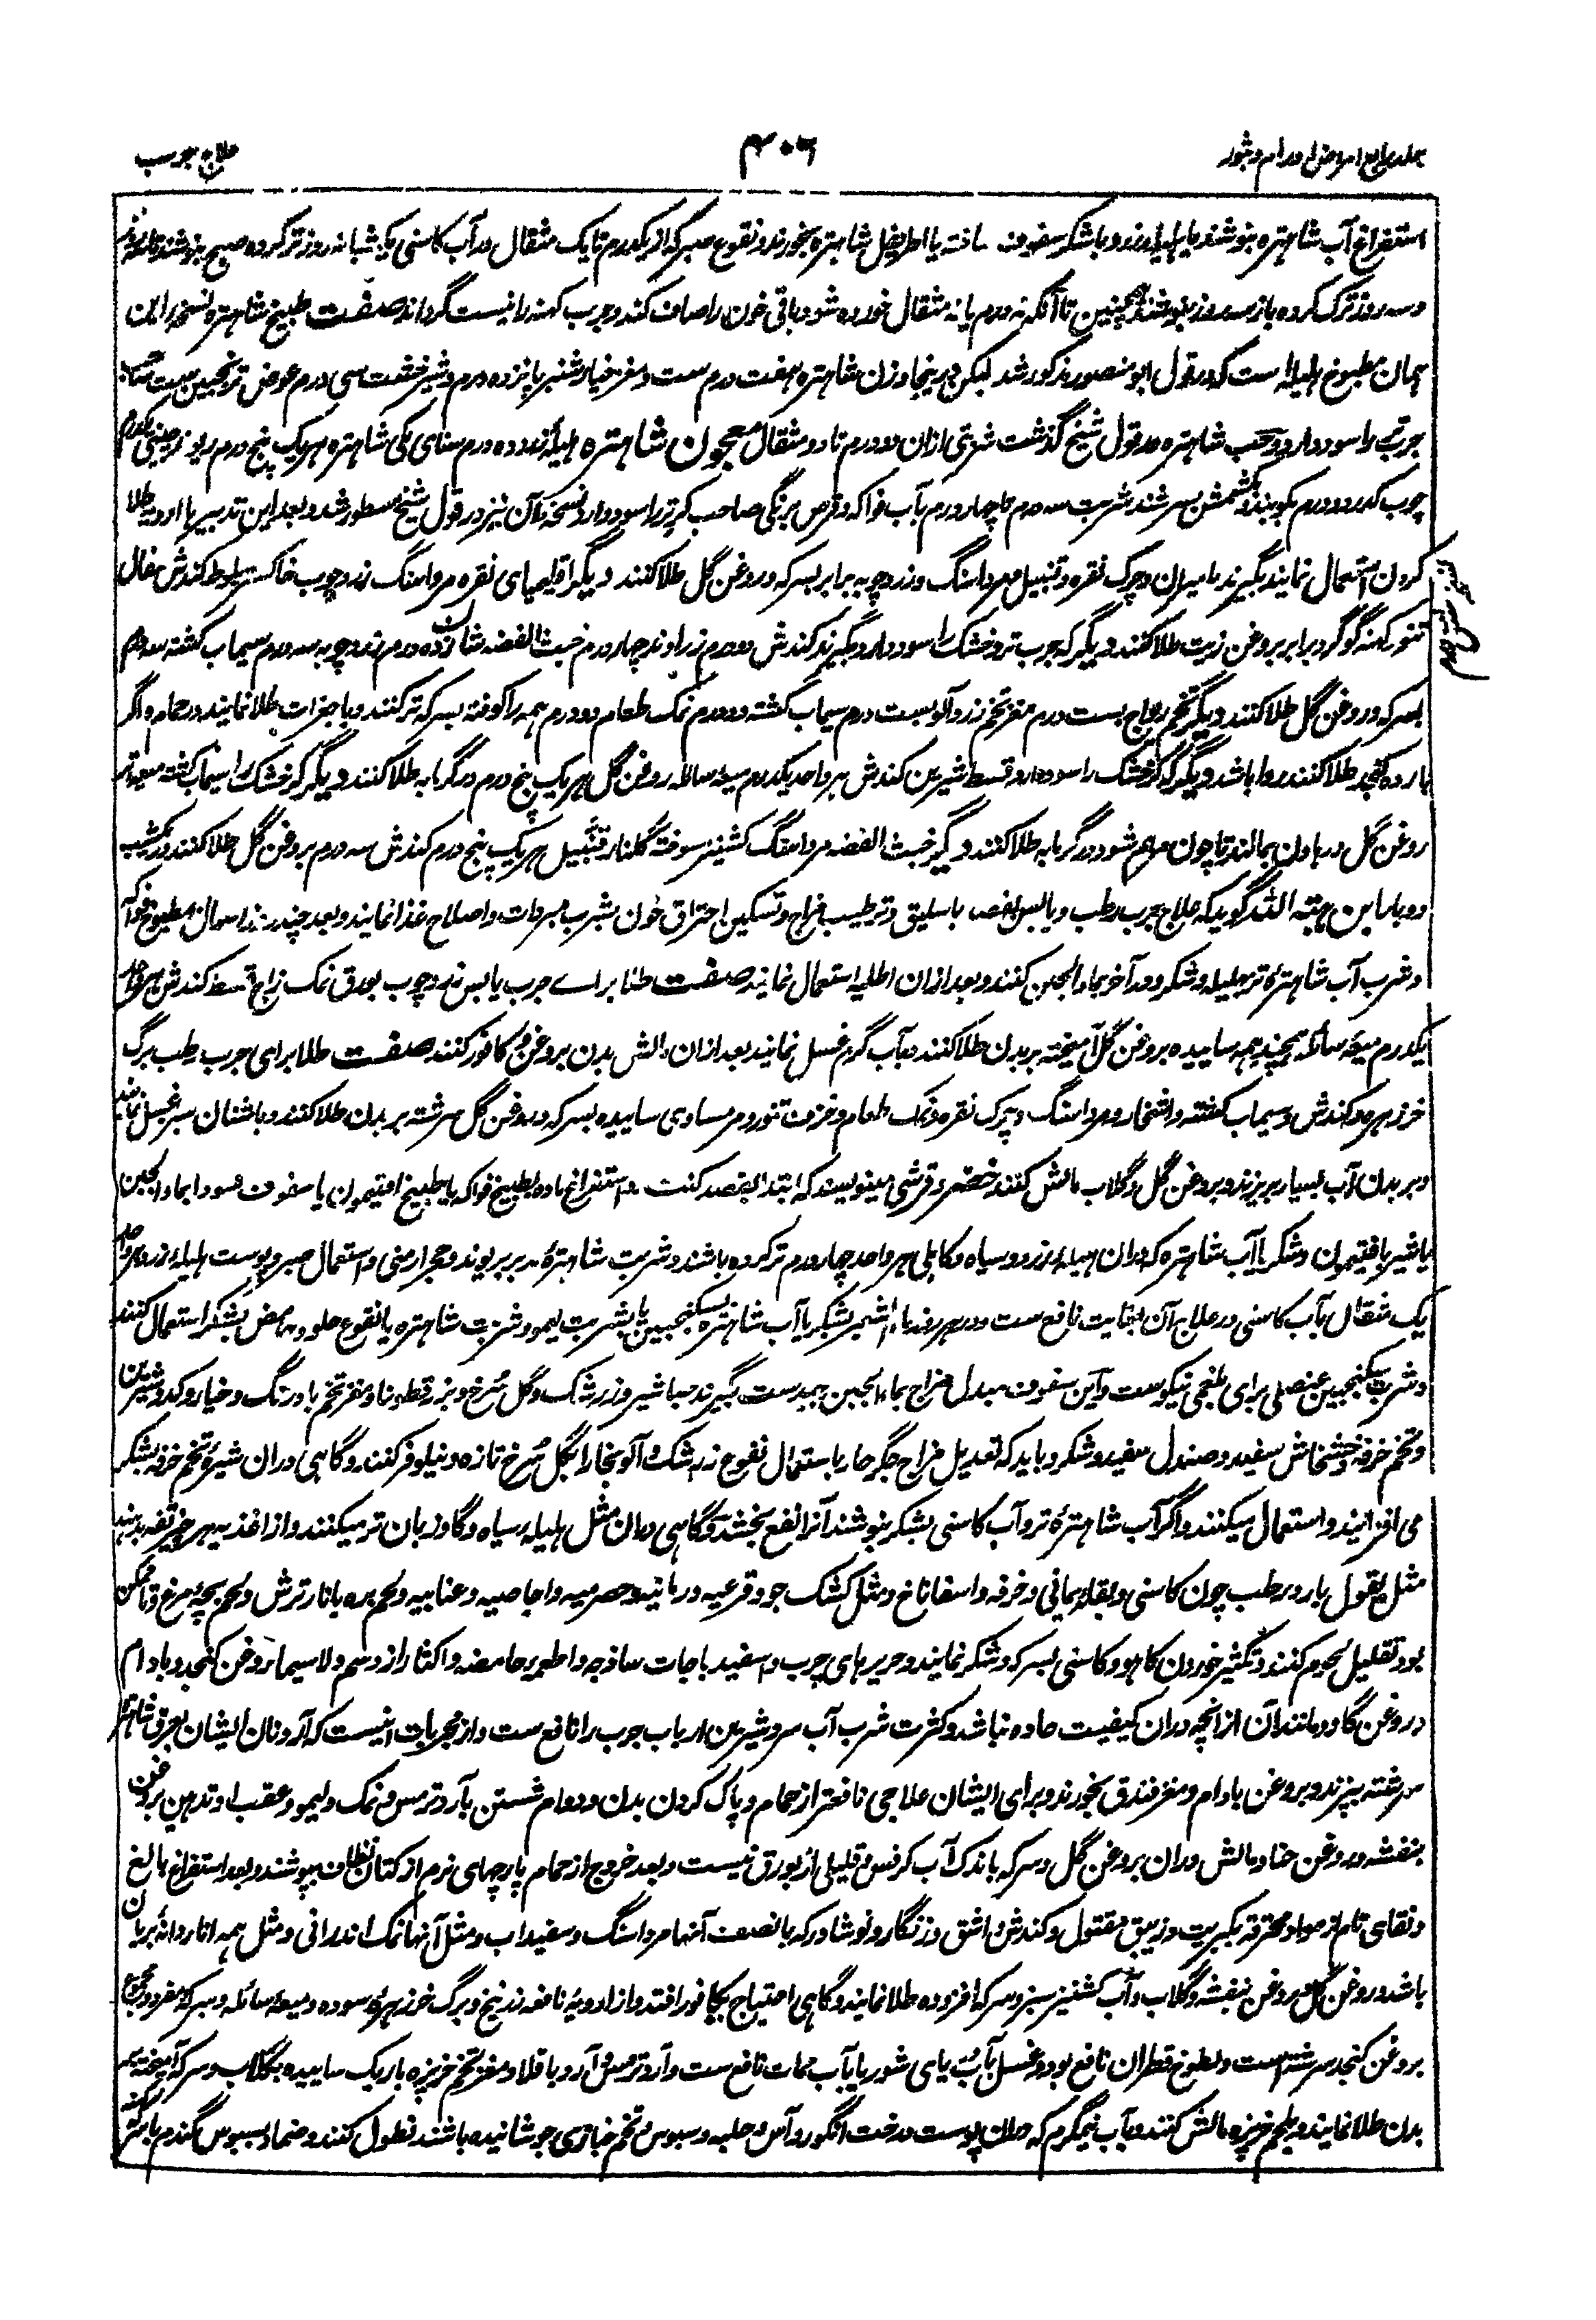 جلد رابع امراض اورام و بثور
۴۰۶
علاج جرب
استفراغ آب شاهتره بنوشند یا هلیله زرد و با شکر سفوف ساخته یا اطریفل شاهتره بخورند و نقوع صبر که از یکدرم تا یک مثقال در آب کاسنی یک شبانه روز تر کرده صبح بنوشند تا سه روز
و سه روز ترک کرده باز سه روز بنوشند همچنین تا آنکه نه درم یا نه مثقال خورده شود باقی خون را صاف کند و جرب کهنه را نیست گرداند صفت طبیخ شاهتره نسخه این
همان مطبوخ هلیله است که در قول ابو منصور مذکور شد لیکن درینجا وزن شاهتره هفت درم ست و مغز خیارشنبر پانزده درم و شیرخشت سی درم عوض ترنجبین ست
جرب را سود دارد و حب شاهتره در قول شیخ گذشت شربتی ازان دو درم تا دو مثقال معجون شاهتره هلیله زرد ده درم سنای مکی شاهتره هریک پنج درم ریوند چینی
چوب کدر دو درم بکوبند و بکشمش بسرشند شربت سه درم تا چهار درم بآب فواکه و قرص برنگی صاحب جرب تر را سود دارد نسخه آن نیز در قول شیخ مسطور شد و بعد این تدبیر با ادویه طلا
کردن استعمال نمایند بگیرند مامیران و چرک نقره و قنبیل مرداسنگ و زردچوبه برابر بسرکه و روغن گل طلا کنند دیگر اقلیمیای نقره مرداسنگ زردچوب خاکستر بلوط کندش سفال
تنور کهنه گوگرد برابر بروغن زیت طلا کنند دیگر که جرب تر و خشک را سود دارد بگیرند کندش دو درم زراوند چهار درم خبث الفضه شاذنه ده درم زردچوبه سه درم سیماب کشته سه درم
بسرکه و روغن گل طلا کنند دیگر تخم رواج بست درم مغز تخم زردآلو بست درم سیماب کشته دو درم نمک طعام دو درم همه را کوفته بسرکه تر کنند و با جغرات طلا نمایند در حمام و اگر
با رده کنجد طلا کنند روا باشد دیگر که گر خشک را سود دارد قسط شیرین کندش هر واحد یکدرم میعه سائله روغن گل هریک پنج درم در گرمابه طلا کنند دیگر گر خشک را سیماب کشته میعه تر
روغن گل در هاون بمالند تا چون مرهم شود در گرمابه طلا کنند دیگر خبث الفضه مرداسنگ کشنیز سوخته گلنار قنبیل هریک پنج درم کندش سه درم بروغن گل طلا کنند
گوید که علاج جرب رطب و یابس فصد باسلیق و ترطیب مزاج و تسکین احتراق خون بشرب مبردات و اصلاح غذا نمایند و بعد چند روز اسهال بمطبوخ فواکه
و شرب آب شاهتره تر بهلیله و شکر و در آخر بماء الجبن کنند و بعد ازان اطلیه استعمال نمایند صفت طلا برای جرب یابس زردچوب بورق نمک زاج قسط کندش هر واحد
یکدرم میعه سائله همچند همه ساییده بروغن گل آمیخته بر بدن طلا کنند و بآب گرم غسل نمایند بعد ازان مالش بدن بروغن کافور کنند صفت طلا برای جرب رطب برگ
خرزهره و کندش و سیماب کشته و اشخار و مرداسنگ و چرک نقره و نمک طعام و خزف تنور و مر مساوی ساییده بسرکه و روغن گل سرشته بر بدن طلا کنند و باشنان سبز غسل نمایند
و بر بدن آب بسیار بریزند و بروغن گل و گلاب مالش کنند خضر و قرشی مینویسند که ابتدا بفصد کنند و استفراغ ماده بطبیخ فواکه یا بطبیخ افتیمون یا سفوف سودا بماء الجبن
یا شیر بافتیمون و شکر یا آب شاهتره که دران هلیله زرد و سیاه و کابلی هر واحد چهار درم تر کرده باشند و شربت شاهتره مدبر بریوند و حجر ارمنی و استعمال صبر و پوست هلیله زرد هر واحد
یک مثقال بآب کاسنی در علاج آن بغایت نافع ست و در هر روز ماء الشعیر بشکر یا آب شاهتره بسکنجبین یا بشربت لیمو و شربت شاهتره یا نقوع حلو و حامض بشکر استعمال کنند
و شربت سکنجبین عنصلی برای بلغمی نیکوست و این سفوف مبدل مزاج بماء الجبن جید ست بگیرند طباشیر و زرشک و گل سرخ و بزر قطونا و مغز تخم بادرنگ و خیار و کدو شیرین
و تخم خرفه و خشخاش سفید و صندل سفید و شکر و باید که تعدیل مزاج جگر حار باستعمال نقوع زرشک و آلو بخارا بگل سرخ تازه و نیلوفر کنند و گاهی دران شیره تخم خرفه بشکر
می افزایند و استعمال میکنند و اگر آب شاهتره تر و آب کاسنی بشکر بنوشند آنرا نفع بخشد و گاهی دران مثل هلیله سیاه و گاوزبان تر میکنند و از اغذیه هر چیز تفه بدهند
مثل بقول بارد رطب چون کاسنی و بقله یمانی و خرفه و اسفاناخ و مثل کشک جو و قرعیه و رمانیه و حصرمیه و اجاصیه و عنابیه و لحم بره بانار ترش و لحم بچه مرغ و تا ممکن
بود تقلیل لحوم کنند و تکثیر خوردن کاهو و کاسنی بسرکه و شکر نمایند و حریرهای چرب و اسفیدباجات ساذجه و اطعمه حامضه و اکثار از دسم و لاسیما روغن کنجد و بادام
و روغن گاو و مانند آن از انچه دران کیفیت حاده نباشد و کثرت شرب آب سرد شیرین ارباب جرب را نافع ست و از مجربات اینست که آرد نان ایشان بعرق شاهتره
سرشته بپزند و بروغن بادام و مغز فندق بخورند و برای ایشان علاجی نافعتر از حمام و پاک کردن بدن و دوام شستن بآرد ترمس و نمک و لیمو و عقب او تدهین بروغن
بنفشه و روغن حنا و مالش دران بروغن گل و سرکه باندک آب کرفس و قلیلی از بورق نیست و بعد خروج از حمام پارچهای نرم از کتان نظاف بپوشند و بعد استفراغ بالغ
و نقای تام از مواد محترقه بکبریت و زیبق مقتول و کندش و اشق و زنگار و نوشادر که بانصف آنها مرداسنگ و سفیداب و مثل آنها نمک اندرانی و مثل همه انار دانه بریان
باشد و روغن گل و روغن بنفشه و گلاب و آب کشنیز سبز و سرکه افزوده طلا نمایند و گاهی احتیاج بکافور افتد و از ادویه نافعه زرنیخ و برگ خرزهره سوده و میعه سائله و سرکه مفرد و مجموع
بروغن کنجد سرشته ست و لطوخ قطران نافع بود و غسل بآب دریای شور یا بآب حمات نافع ست و آرد ترمس و آرد باقلا و مغز تخم خربزه باریک ساییده بگلاب و سرکه آمیخته بر
بدن طلا نمایند و بلحم خربزه مالش کنند و بآب نیمگرم که دران پوست درخت انگور و آس و حلبه و سبوس و تخم خبازی جوشانیده باشند نطول کنند و ضماد سبوس گندم با سرکه